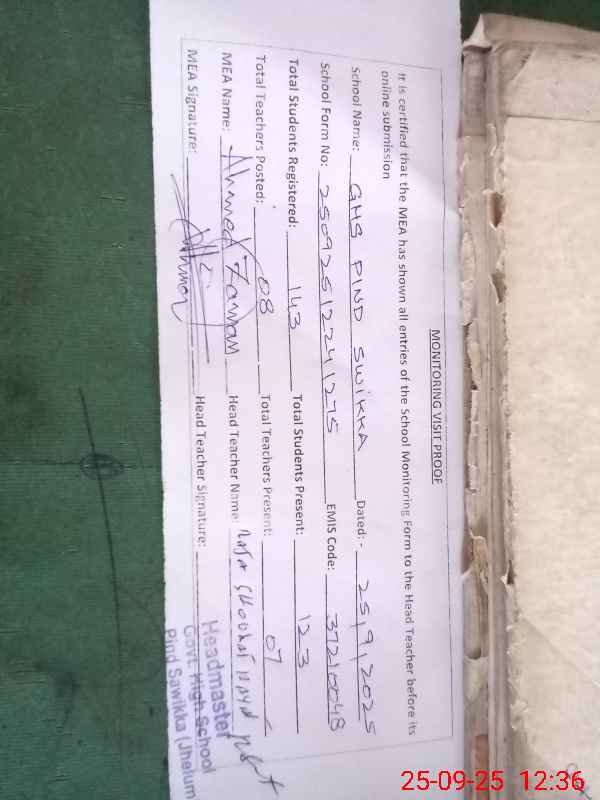 MONITORING VISIT PROOF
It is certified that the MEA has shown all entries of the School Monitoring Form to the Head Teacher before its
online submission
School Name: GHS PIND SWIKKA Dated:- 25/9/2025
School Form No: 25092512241275 EMIS Code: 37210048
Total Students Registered: 143 Total Students Present: 123
Total Teachers Posted: 08 Total Teachers Present: 07
MEA Name: Ahmed Head Teacher Name: Raja
MEA Signature: Head Teacher Signature:
Headmaster
Govt. High School
Pind Sawikka (Jhelum
25-09-25 12:36